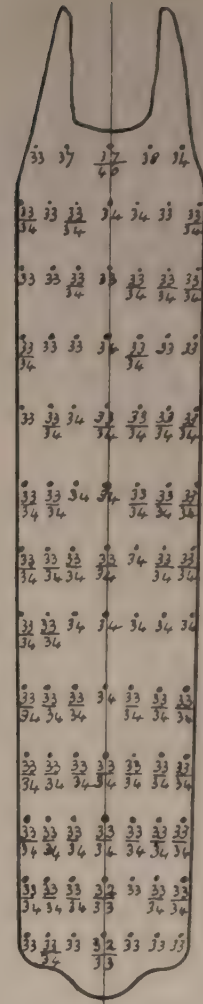 33 37 37/40 38 34
33/34 33 33/34 34 34 33 33/34
33 33 33/34 33 33/34 33/34 33/34
33/34 33 33 34 33/34 33 33
33 33/34 34 33/34 33/34 33/34 33/34
33/34 33/34 34 34 33/34 33/34 33/34
33/34 33/34 33/34 33/34 34 33/34 33/34
33/34 33/34 34 34 34 34 34
33/34 33/34 33/34 34 33/34 33/34 33/34
33/34 33/34 33/34 33/34 33/34 33/34 33/34
33/34 33/34 33/34 33/34 33/34 33/34 33/34
33/34 33/34 33/34 32/33 33 33/34 33/34
33 33/34 33 32/33 33 33 33